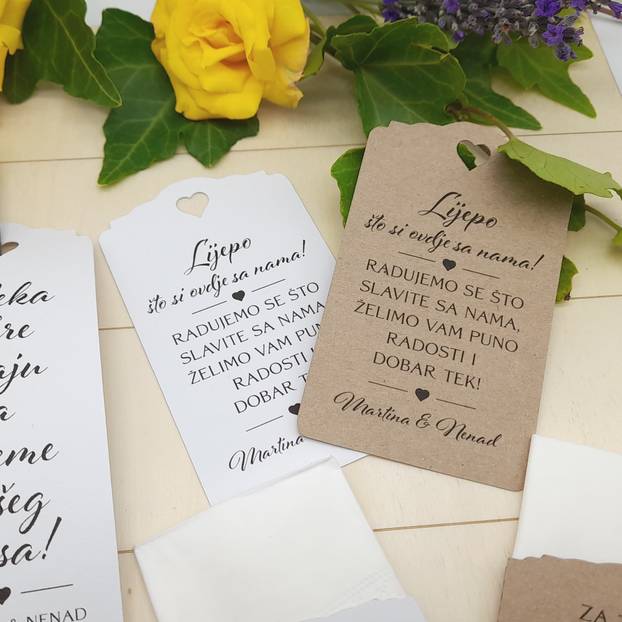 eka
re
aju
a
eme
šeg
sa!
& NENAD
Lijepo
što si ovdje sa nama!
RADUJEMO SE ŠTO
SLAVITE SA NAMA,
ŽELIMO VAM PUNO
RADOSTI I
DOBAR TEK
Martina
Lijepo
što si ovdje sa nama!
RADUJEMO SE ŠTO
SLAVITE SA NAMA,
ŽELIMO VAM PUNO
RADOSTI I
DOBAR TEK!
Martina & Nenad
ZA